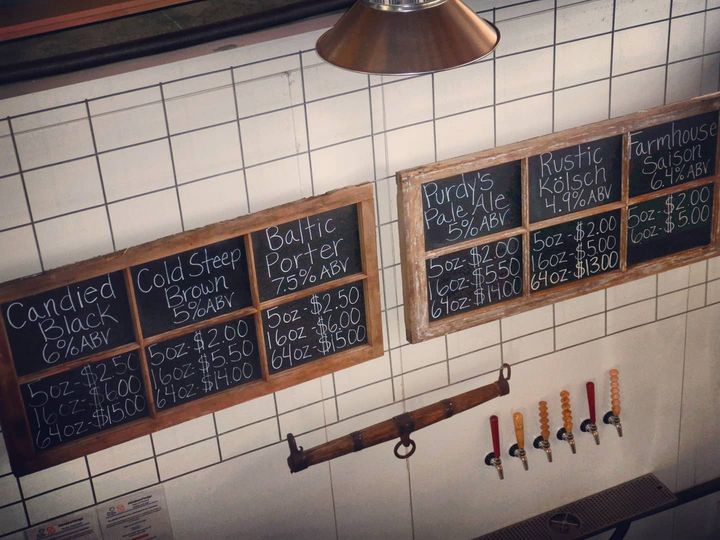 Candied
Black
6%ABV
5oz-$2.50
16oz-$6.00
64oz-$15.00
Cold Steep
Brown
5%ABV
5oz-$2.00
16oz-$5.50
64oz-$14.00
Baltic
Porter
7.5% ABV
5oz-$2.50
16oz-$6.00
64oz-$15.00
Purdy's
Pale Ale
5%ABV
5oz-$2.00
16oz-$5.50
64oz-$14.00
Rustic
Kölsch
4.9%ABV
5oz-$2.00
16oz-$5.00
64oz-$13.00
Farmhouse
Saison
6.4%ABV
5oz-$2.00
16oz-$5.00